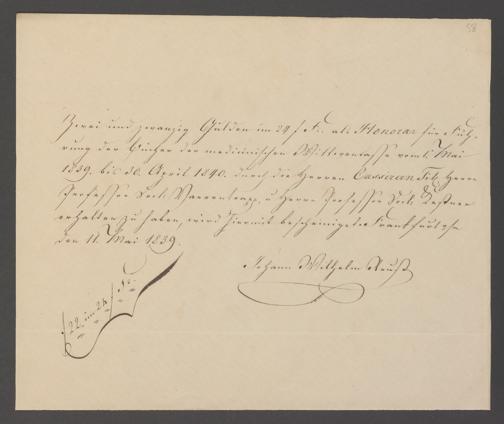 58
Zwei und zwanzig Gulden im 24 f F. als Honorar für Füh-
rung der Bücher der medicinischen Wittwencasse vom 1. Mai
1839. bis 30. April 1840. durch die Herren Cassieren Tit. Herrn
Professor Doct. Varrentrapp, u Herrn Professor Doct. Kestner
erhalten zu haben, wird hiermit bescheiniget. Frankfurt
den 11. Mai 1839.
Johann Wilhelm
f 22. im 24 f